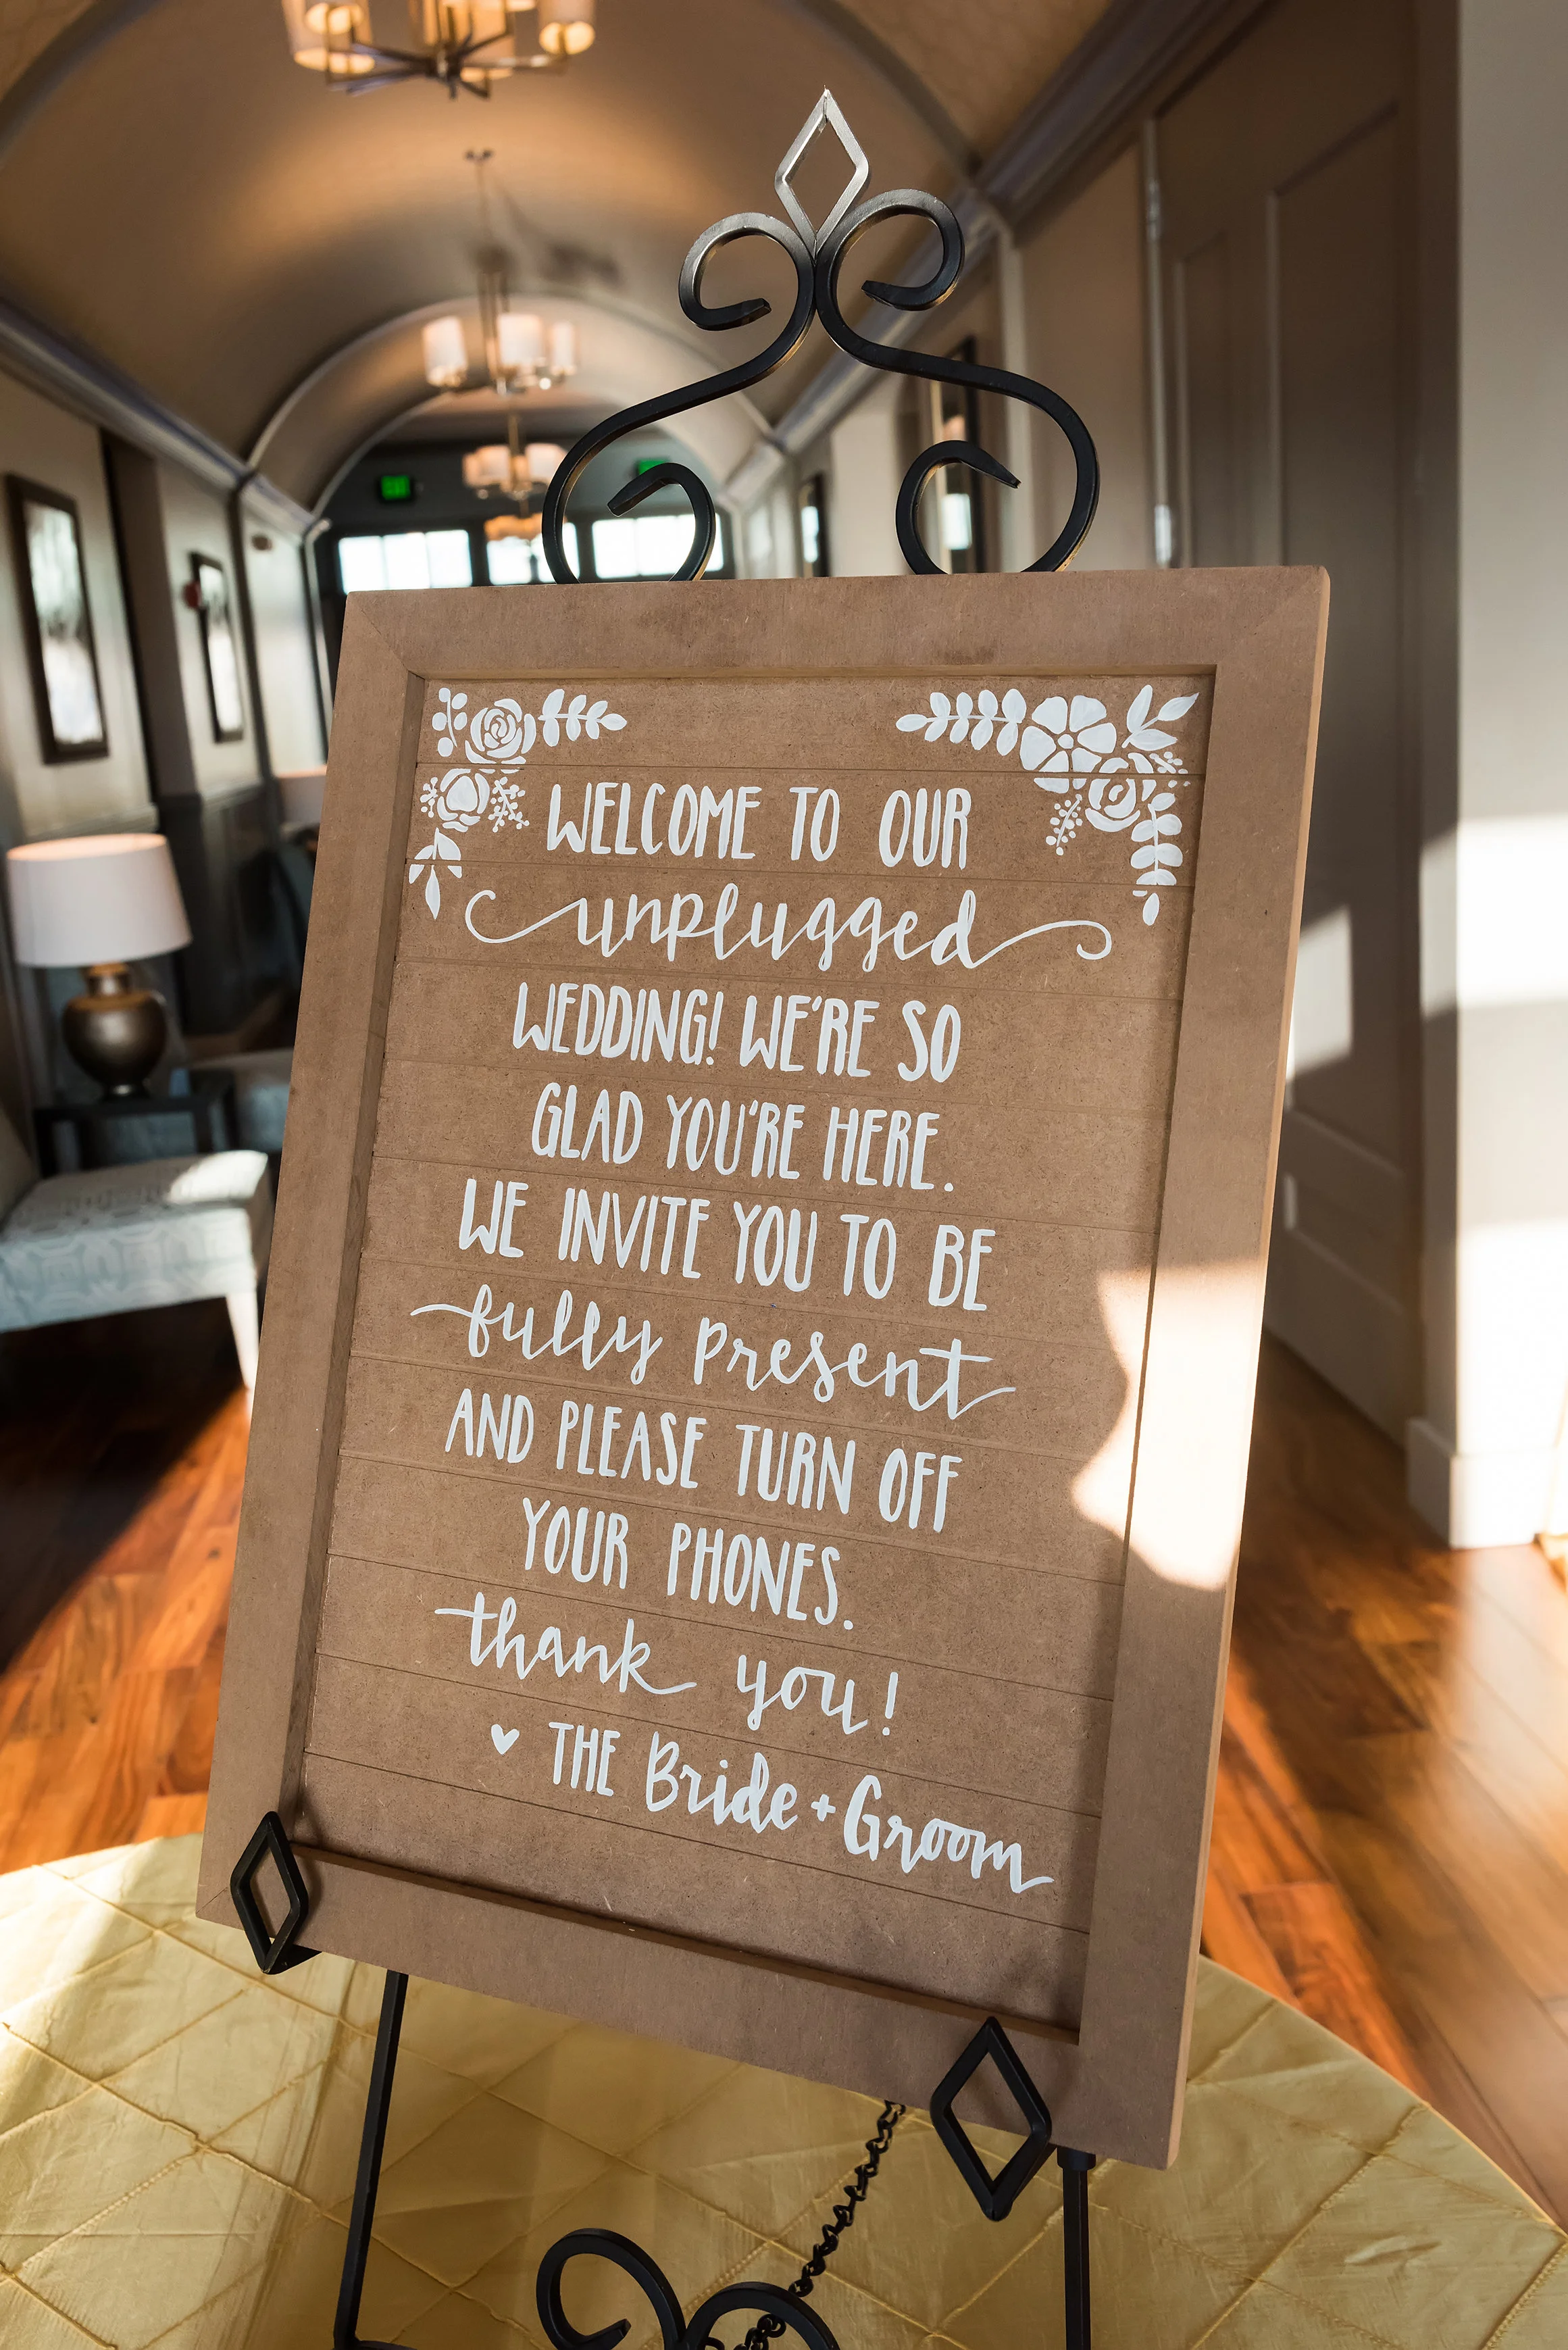 WELCOME TO OUR
unplugged
WEDDING! WE'RE SO
GLAD YOU'RE HERE.
WE INVITE YOU TO BE
fully present
AND PLEASE TURN OFF
YOUR PHONES.
thank you!
♥ THE Bride + Groom